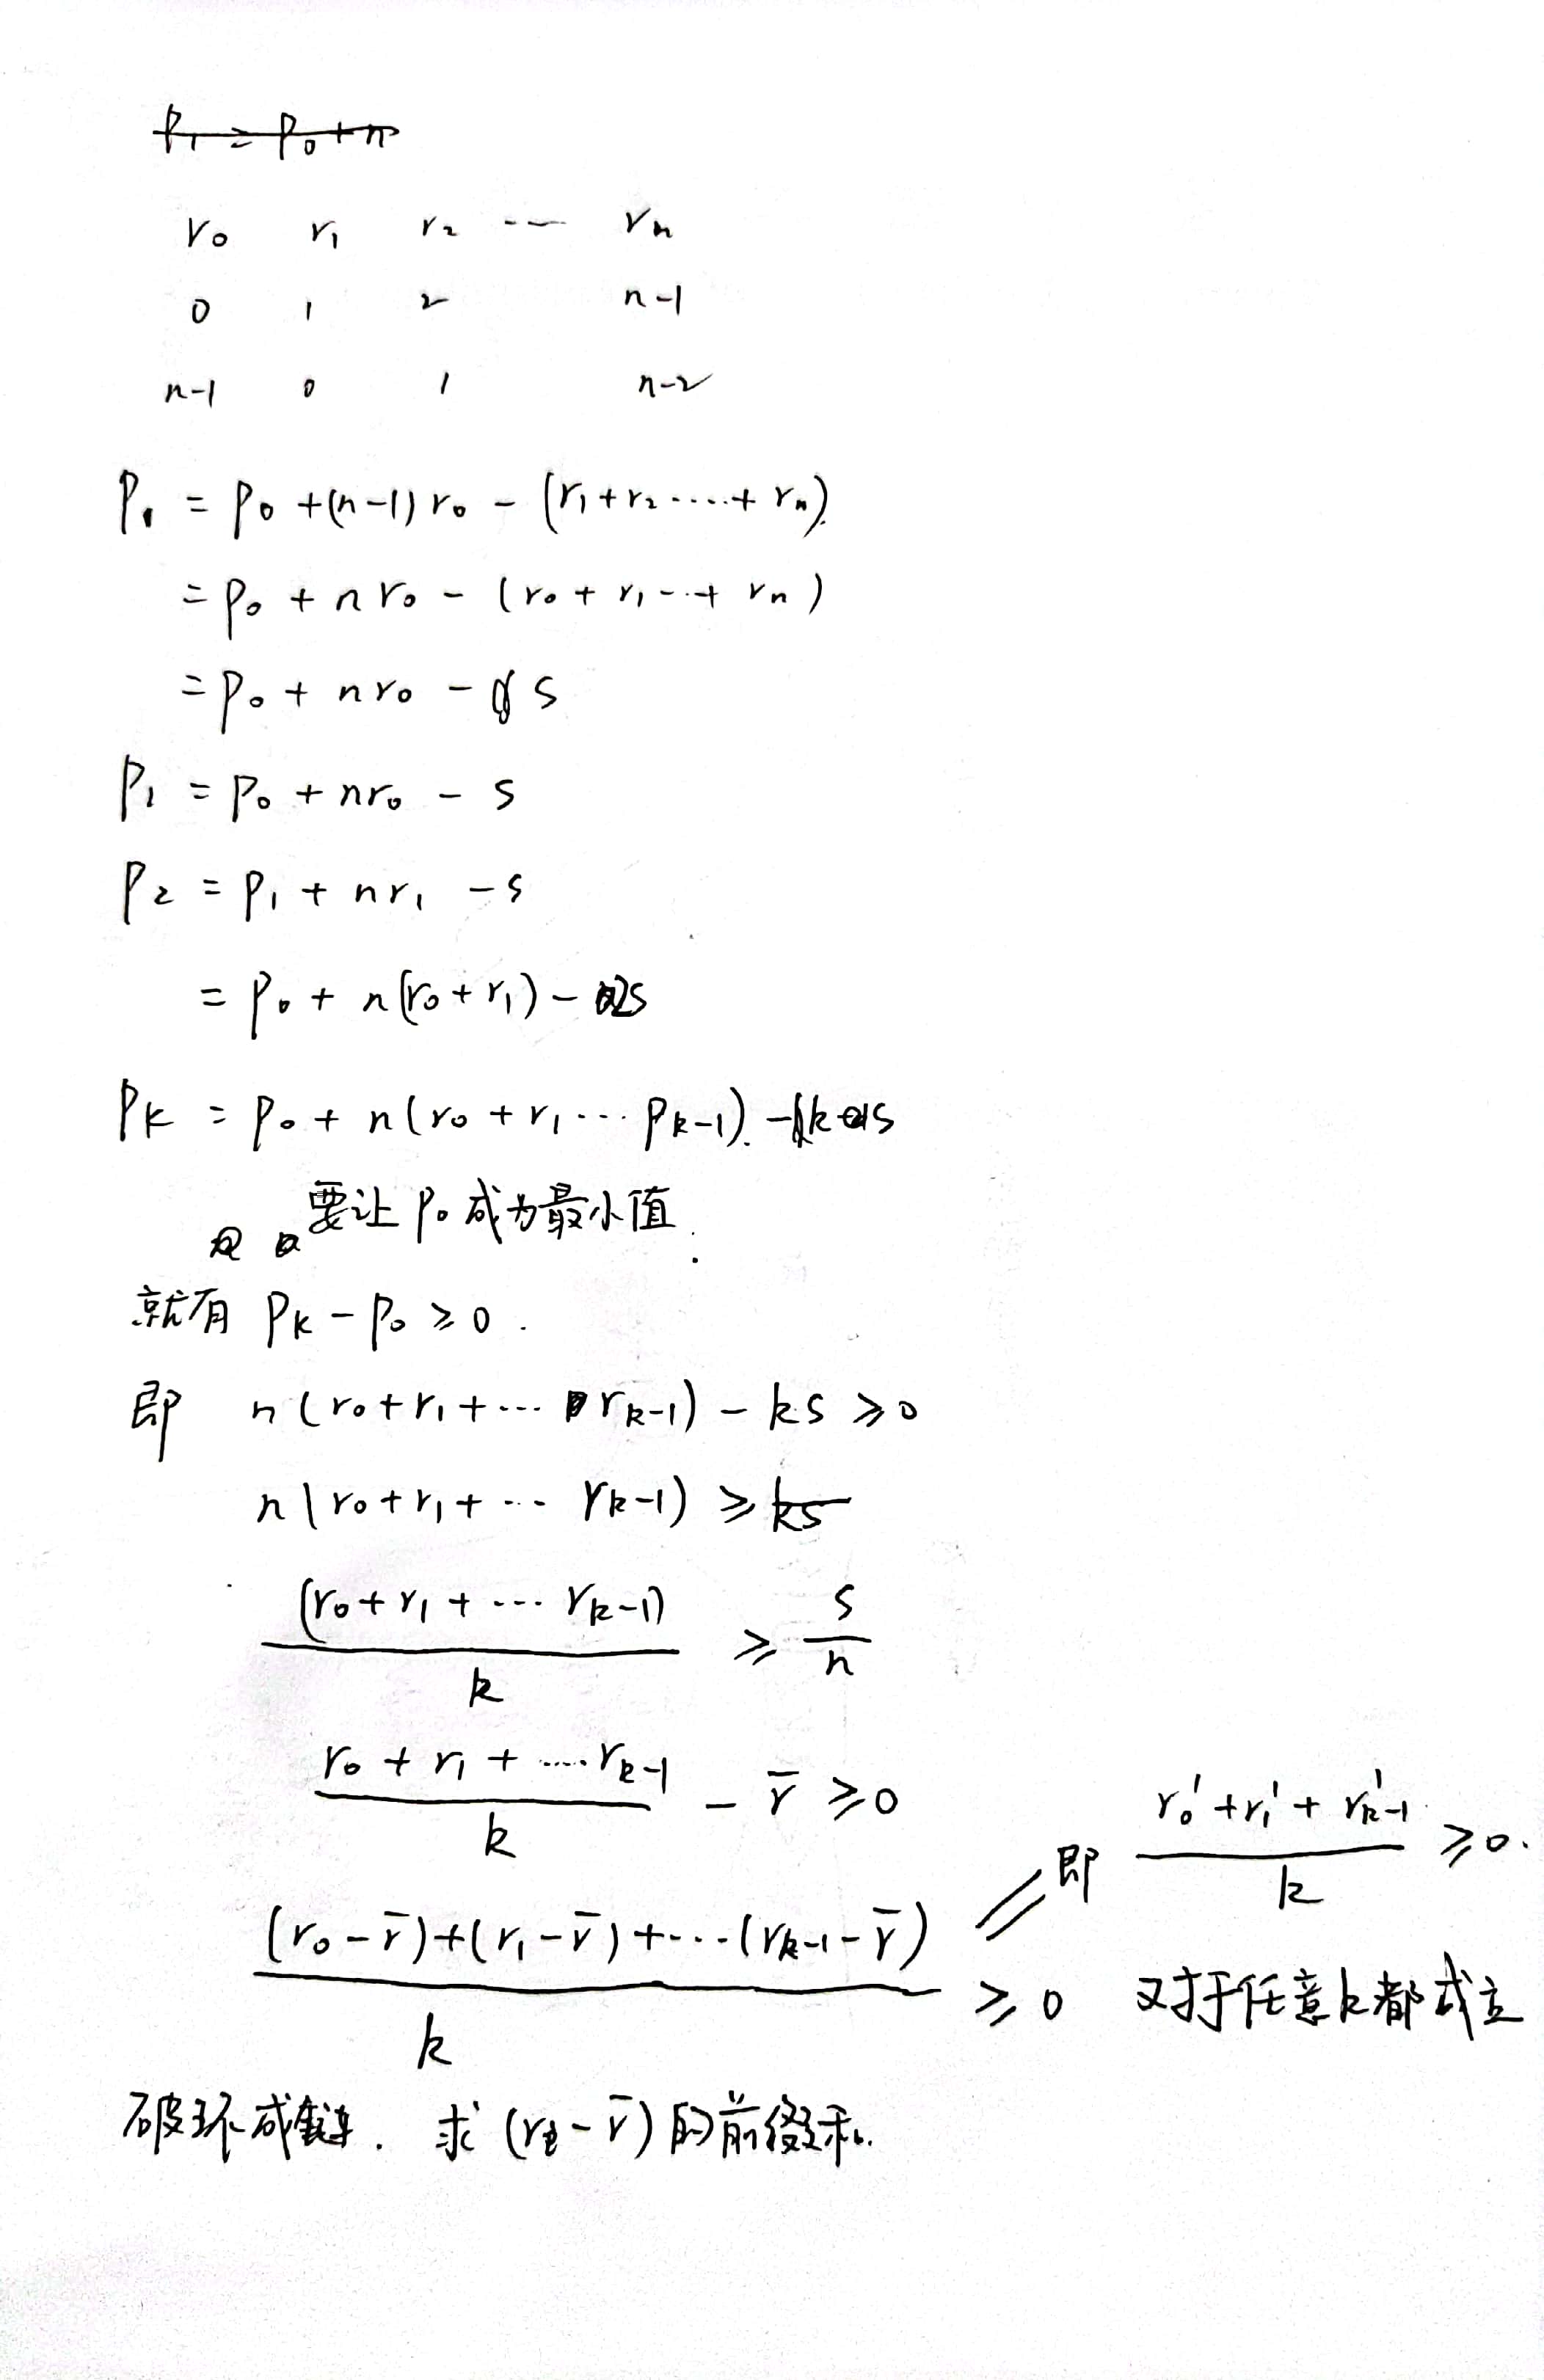 P₁ = P₀ + n
r₀ r₁ r₂ ---- rₙ
0 1 2 n-1
n-1 0 1 n-2
P₁ = P₀ + (n-1) r₀ - (r₁ + r₂ ····· + rₙ).
= P₀ + n r₀ - (r₀ + r₁ --+ rₙ)
= P₀ + n r₀ - s
P₁ = P₀ + n r₀ - s
P₂ = P₁ + n r₁ - s
= P₀ + n(r₀ + r₁) - 2s
Pₖ = P₀ + n(r₀ + r₁ ··· Pₖ₋₁). - ks
要让 P₀ 成为最小值.
就有 Pₖ - P₀ ⩾ 0 .
即 n(r₀ + r₁ + ··· rₖ₋₁) - ks ⩾ 0
n(r₀ + r₁ + ··· rₖ₋₁) ⩾ ks
(r₀ + r₁ + ··· rₖ₋₁) / k ⩾ s / n
(r₀ + r₁ + ····· rₖ₋₁) / k - r̄ ⩾ 0
即 (r₀' + r₁' + rₖ₋₁') / k ⩾ 0.
((r₀ - r̄) + (r₁ - r̄) + ··· (rₖ₋₁ - r̄)) / k ⩾ 0 对于任意k都成立
破环成链. 求 (r - r̄) 的前缀和.